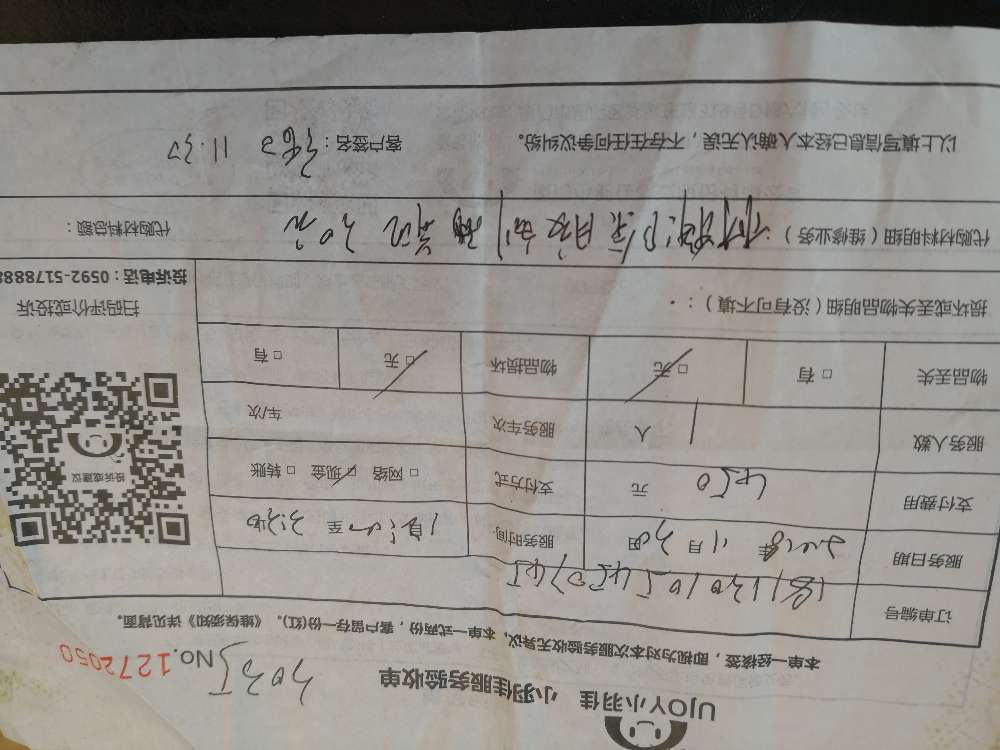 UJOY小羽佳 小羽佳服务验收单
No.1272050
本单一经接签，即视为对本次服务验收无异议，本单一式两份，客户留存一份(红)。《维保须知》详见背面。
订单编号
服务日期 2018年 11月30日 服务时间 至
支付费用 450 元 支付方式 □ 网络 □ 现金 □ 转账
服务人数 1 人 服务车次 车/次
物品丢失 □ 有 □ 无 物品损坏 □ 无 □ 有
损坏或丢失物品明细（没有可不填）：
扫码评价或投诉
投诉电话：0592-5178888
投诉或建议
代购材料明细（维修业务）： 代购材料总额：
以上填写信息已经本人确认无误，不存在任何争议纠纷。 客户签名： 11.30